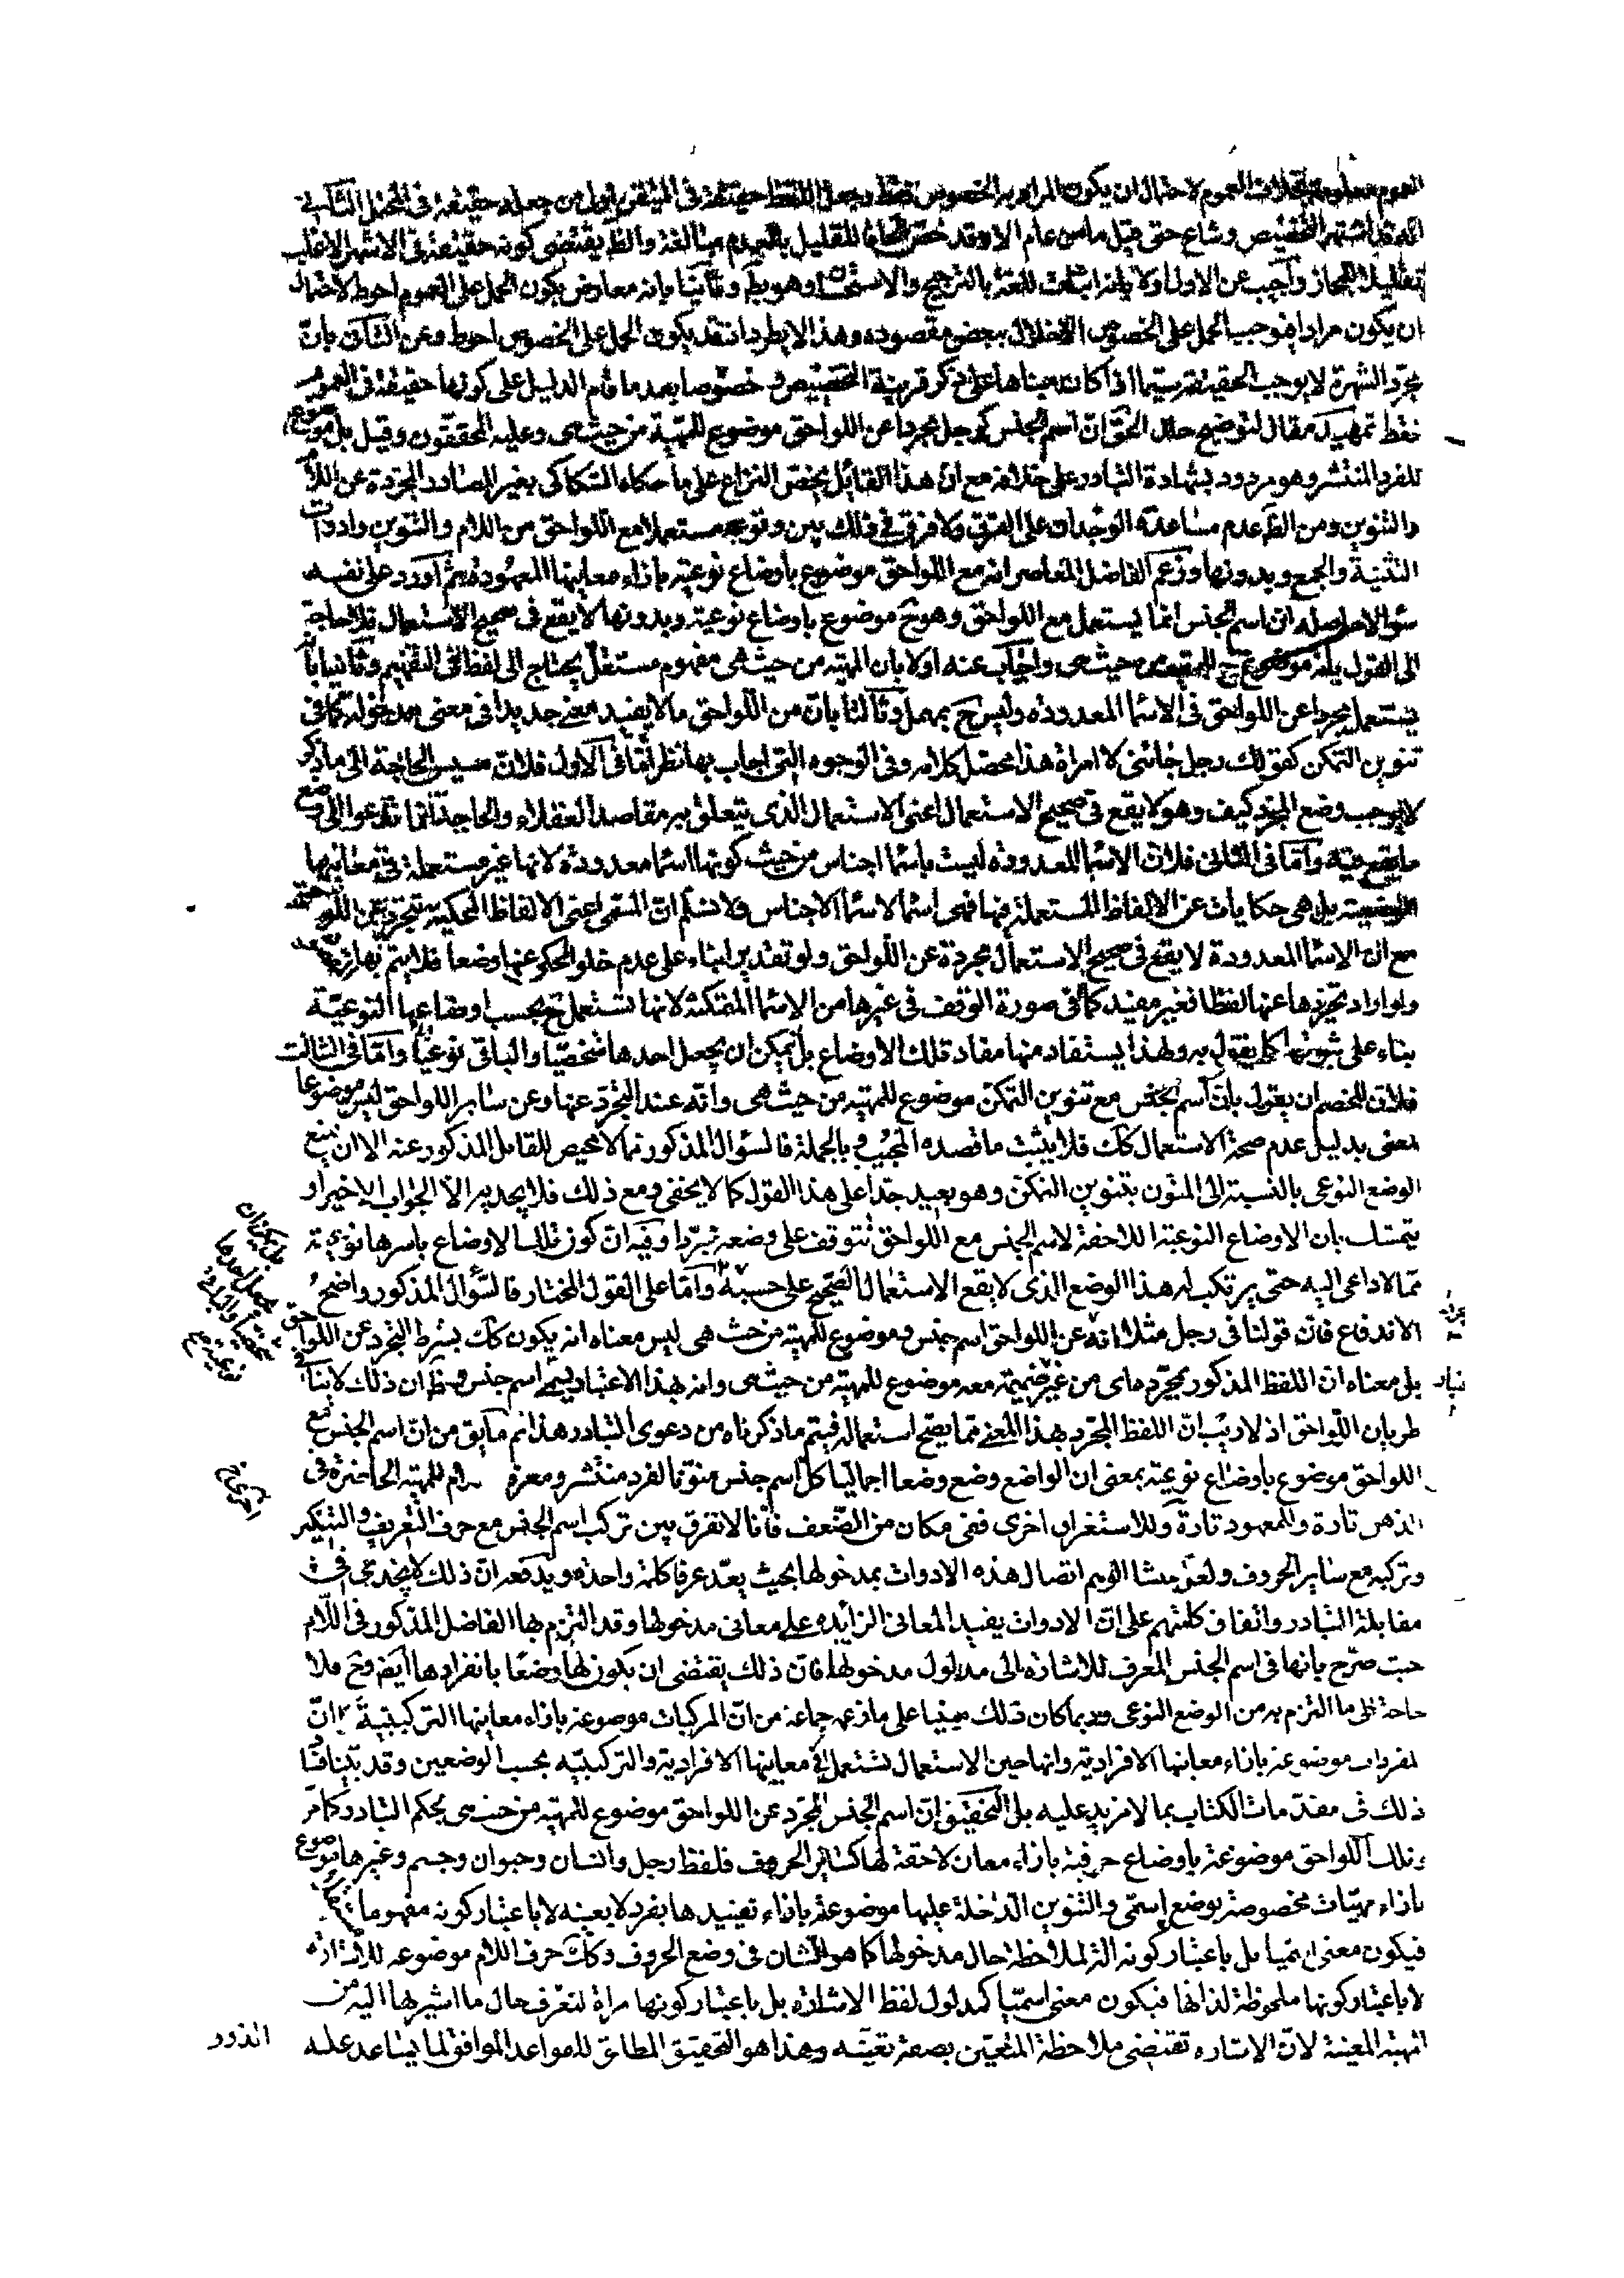 العموم معلومة بخلاف العموم لاحتمال ان يكون المراد به الخصوص فقط وجعل اللفظ حقيقة فى المتيقن اولى من جعله حقيقة فى المحتمل الثانى
انه قد اشتهر التخصيص وشاع حتى قيل ما من عام الا وقد خص الحاقا للقليل بالعدم مبالغة والظ يقتضى كونه حقيقة فى الاشهر الاغلب
تقليلا للمجاز واجيب عن الاول اولا بانه اثبات للغة بالترجيح والاستحسان وهو بط وثانيا بانه معارض بكون الحمل على العموم احوط لاحتمال
ان يكون مرادا فيوجب الحمل على الخصوص الاخلال ببعض مقصوده وهذا لا يطرد اذ قد يكون الحمل على الخصوص احوط وعن الثانى بانّ
مجرّد الشهرة لا يوجب الحقيقة سيّما اذا كان مبناها على ذكر قرينة التخصيص و خصوصا بعد ما قام الدليل على كونها حقيقة فى العموم
فقط تمهيد مقال لتوضيح حال الحقّ انّ اسم الجنس كرجل مجردا عن اللواحق موضوع للمهيّة من حيث هى وعليه المحققون وقيل بل موضوع
للفرد المنتشر وهو مردود بشهادة التبادر على خلافه مع ان هذا القائل يخصّ النزاع على ما حكاه السّكاكى بغير المصادر المجردة عن اللام
والتنوين ومن الظ عدم مساعدة الوجدان على الفرق ولا فرق فى ذلك بين وقوعه مستعملا مع اللواحق من اللام والتنوين وادوات
التثنية والجمع وبدونها وزعم الفاضل المعاصر انه مع اللواحق موضوع باوضاع نوعيّة بازاء معانيها المعهودة ثم اورد على نفسه
سؤالا حاصله ان اسم الجنس انما يستعمل مع اللواحق وهو ح موضوع باوضاع نوعية وبدونها لا يقع فى صحيح الاستعمال فلا حاجة
الى القول بانه موضوع ح للمهية من حيث هى واجاب عنه اولا بان المهيّة من حيث هى مفهوم مستقلّ يحتاج الى لفظ فى التفهيم وثانيا بانه
يستعمل مجردا عن اللواحق فى الاسماء المعدودة وليس ح بمهمل وثالثا بان من اللواحق ما لا يفيد معنى جديدا فى معنى مدخوله كما فى
تنوين التمكن كقولك رجل جائنى لا امراة هذا محصّل كلامه وفى الوجوه التى اجاب بها نظر امّا فى الاول فلان مسيس الحاجة الى ما ذكر
لا يوجب وضع المجرد كيف وهو لا يقع فى صحيح الاستعمال اعنى الاستعمال الذى يتعلق به مقاصد العقلاء والحاجة انّما تدعوا الى وضع
ما يقع فيه وامّا فى الثانى فلان الاسماء المعدودة ليست باسماء اجناس من حيث كونها اسماء معدودة لانها غير مستعملة فى معانيها
الوضعية بل هى حكايات عن الالفاظ المستعملة فيها فهى اسماء لاسماء الاجناس ولا نسلّم انّ المسمّى اعنى الالفاظ المحكية تتجرد عن اللواحق
مع ان الاسماء المعدودة لا يقع فى صحيح الاستعمال مجردة عن اللواحق ولو تقديرا بناء على عدم خلو المحكى عنها وضعا فلا يتم
ولو اراد تجرّدها عنها لفظا فغير مفيد كما فى صورة الوقف فى غيرها من الاسماء المتمكنة لانها تستعمل ح بحسب اوضاعها النوعيّة
بناء على ثبوتها كما يقول به ولهذا يستفاد منها مفاد تلك الاوضاع بل يمكن ان يجعل احدها شخصيّا والباقى نوعيّا وامّا فى الثالث
فلان للخصم ان يقول بانّ اسم الجنس مع تنوين التمكن موضوع للمهيّة من حيث هى وانّه عند التجرّد عنها وعن ساير اللواحق ليس موضوعا
لمعنى بدليل عدم صحة الاستعمال كك فلا يثبت ما قصده المجيب وبالجملة فالسؤال المذكور مما لا محيص للقائل المذكور عنه الا ان يمنع
الوضع النوعى بالنسبة الى المنون بتنوين التمكن وهو بعيد جدّا على هذا القول كما لا يخفى ومع ذلك فلا يجديه الا الجواب الاخير او
يتمسّك بان الاوضاع النوعية اللاحقة لاسم الجنس مع اللواحق تتوقف على وضعه مجرّدا وفيه انّ كون تلك الاوضاع باسرها نوعيّة
ممّا لا داعى اليه حتى يرتكب له هذا الوضع الذى لا يقع الاستعمال الصّحيح على حسبه وامّا على القول المختار فالسّؤال المذكور واضح
الاندفاع فانّ قولنا فى رجل مثلا انّه عن اللواحق اسم جنس وموضوع للمهية من حيث هى ليس معناه انه يكون كك بشرط التجرد عن اللواحق
بل معناه ان اللفظ المذكور بمجرّده من غير ضميمة معه موضوع للمهية من حيث هى وانه بهذا الاعتبار يسمّى اسم جنس وظ ان ذلك لا ينافى
طريان اللواحق اذ لا ريب انّ اللفظ المجرّد بهذا المعنى ممّا يصحّ استعماله فيتم ما ذكرناه من دعوى التبادر وهذا ثم ما سبق من انّ اسم الجنس مع
اللواحق موضوع باوضاع نوعيّة بمعنى ان الواضع وضع وضعا اجماليا كلّ اسم جنس منوّنا لفرد منتشر ومعرّفا للمهية الحاضرة فى
الذهن تارة وللمعهود تارة وللاستغراق اخرى ففى مكان من الضّعف فانّا لا نفرق بين تركّب اسم الجنس مع حرف التعريف والتنكير
وتركبه مع ساير الحروف ولعلّ منشا الوهم اتصال هذه الادوات بمدخولها بحيث يعدّ عرفا كلمة واحدة ويدفعه انّ ذلك لا يجدى فى
مقابلة التبادر واتفاق كلمتهم على انّ الادوات يفيد المعانى الزائدة على معانى مدخولها وقد التزم بها الفاضل المذكور فى اللّام
حيث صرّح بانها فى اسم الجنس المعرف للاشارة الى مدلول مدخولها فانّ ذلك يقتضى ان يكون لها وضعا بانفرادها ايض وح فلا
حاجة الى ما التزم به من الوضع النوعى وربما كان ذلك مبنيا على ما زعمه جماعة من انّ المركبات موضوعة بازاء معانيها التركيبية كما انّ
المفردات موضوعة بازاء معانيها الافرادية وانها حين الاستعمال تستعمل فى معانيها الافرادية والتركيبيّه بحسب الوضعين وقد بيّنا فساد
ذلك فى مقدّمات الكتاب بما لا مزيد عليه بل التحقيق انّ اسم الجنس المجرّد عن اللواحق موضوع للمهيّة من حيث هى بحكم التبادر كما مرّ
وتلك اللواحق موضوعة باوضاع حرفية بازاء معان لاحقة لها كساير الحروف فلفظ رجل وانسان وحيوان وجسم وغيرها موضوع
بازاء مهيّات مخصوصة بوضع اسمّى والتنوين الدّاخلة عليها موضوعة بازاء تقييدها بفرد لا بعينه لا باعتبار كونه مفهوما
فيكون معنى اسميا بل باعتبار كونه الة لملاحظة حال مدخولها كما هو الشان فى وضع الحروف وكك حرف اللام موضوعة للاشارة
لا باعتبار كونها ملحوظة لذاتها فيكون معنى اسميّا كمدلول لفظ الاشارة بل باعتبار كونها مراة لتعرف حال ما اشير بها اليه من
المهية المعينة لانّ الاشاره تقتضى ملاحظة المتعيّن بصفة تعيّنه وهذا هو التحقيق المطابق للقواعد الموافق لما يساعد عليه